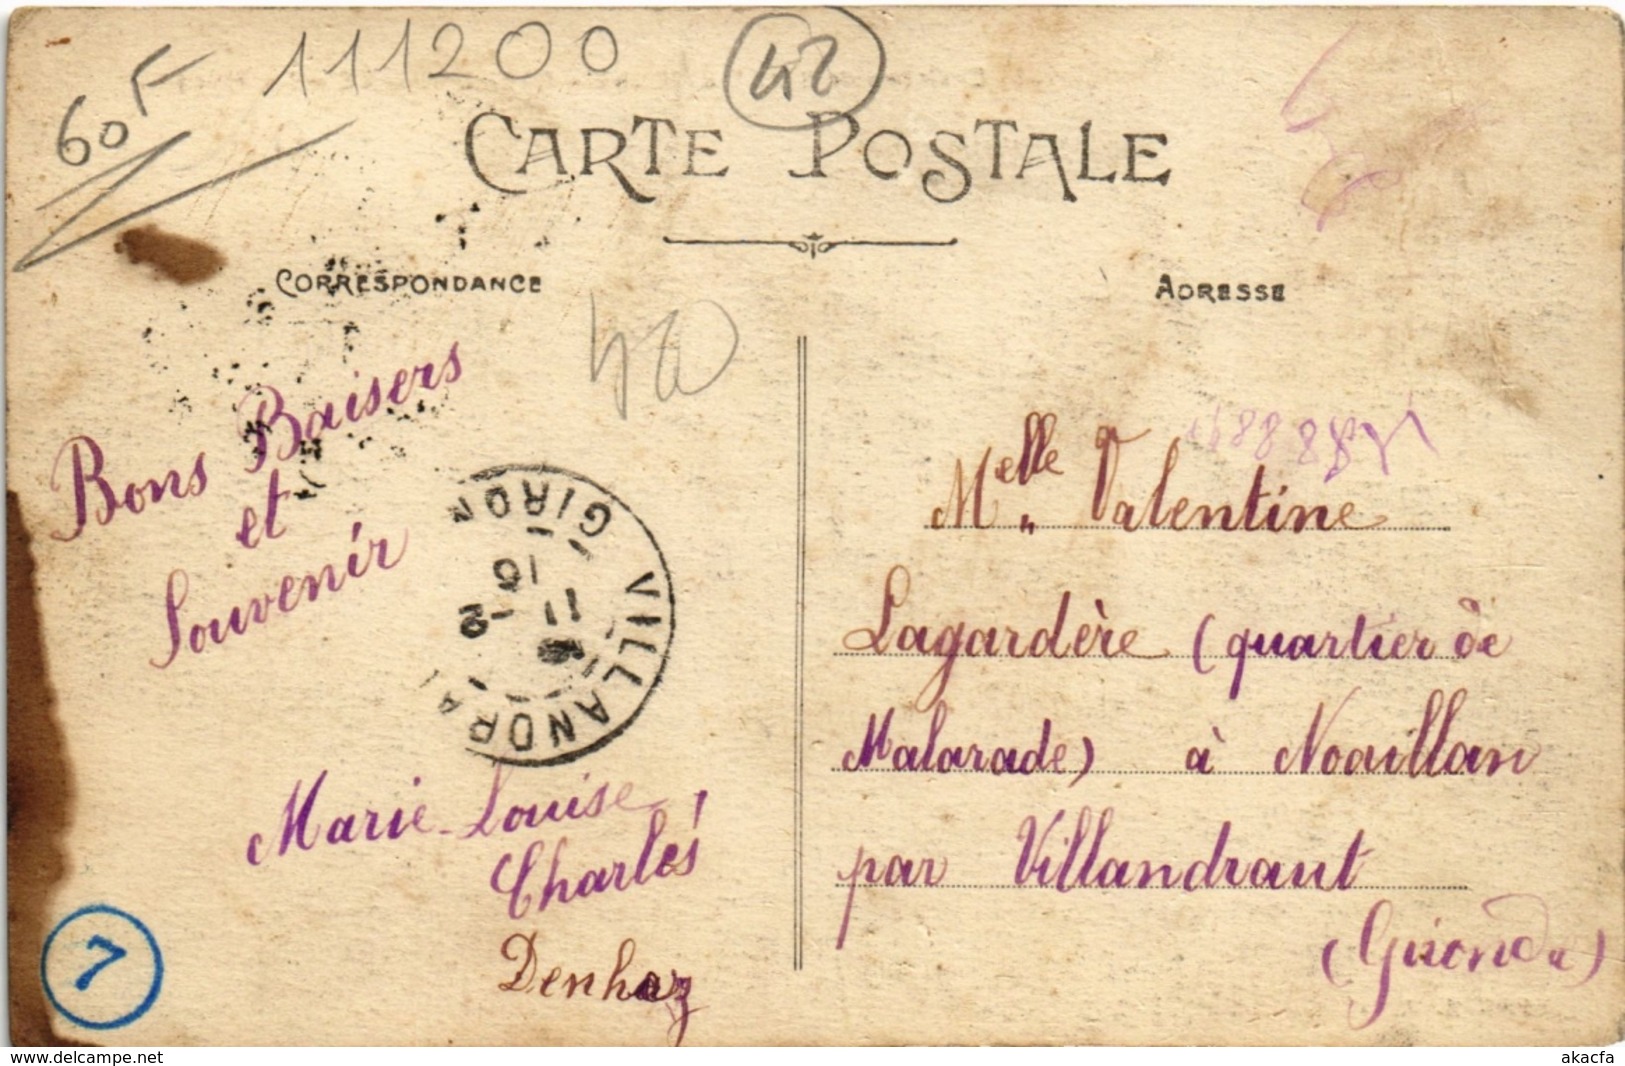 60F
111200
42
CARTE POSTALE
CORRESPONDANCE
ADRESSE
42
Bons Baisers
et
Souvenir
VILLANDRA
GIRON
2
11
10
Marie-Louise,
Charles
Denhaz
7
Melle Valentine
Lagardère (quartier de
Malarade) à Noaillan
par Villandraut
(Gironde)
www.delcampe.net
akacfa